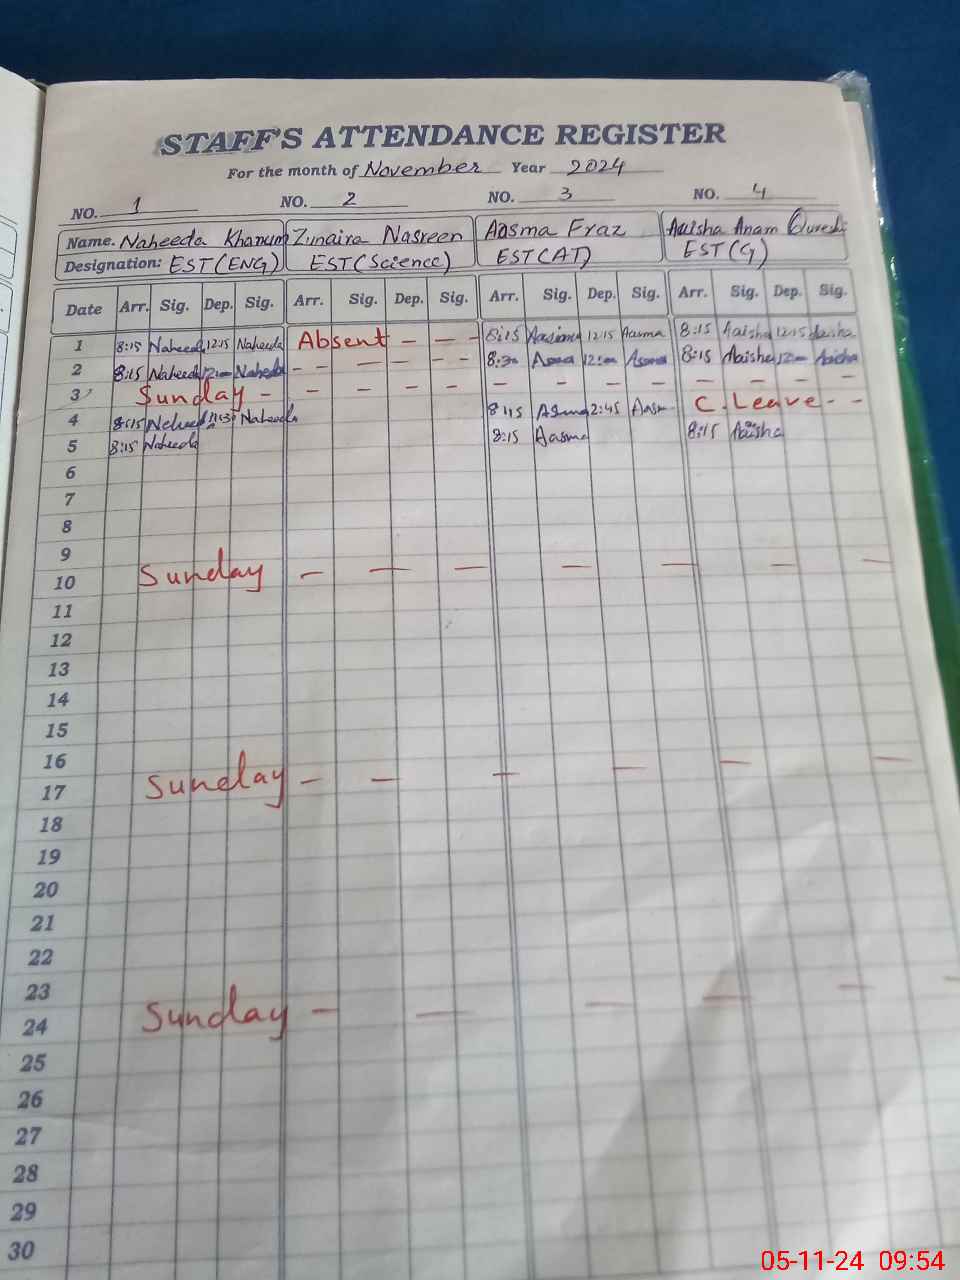 STAFF'S ATTENDANCE REGISTER
For the month of November Year 2024
NO. 1 NO. 2 NO. 3 NO. 4
Name. Naheeda Khanum Zunaira Nasreen Aasma Fraz Aaisha Anam Qureshi
Designation: EST(ENG) EST(Science) EST(AT) EST(G)
Date Arr. Sig. Dep. Sig. Arr. Sig. Dep. Sig. Arr. Sig. Dep. Sig. Arr. Sig. Dep. Sig.
1 8:15 Naheeda 12:15 Naheeda Absent - - - 8:15 Aasma 12:15 Aasma 8:15 Aaisha 12:15 Aaisha
2 8:15 Naheeda 12:00 Naheeda - - - - 8:30 Asma 12:00 Asma 8:15 Aaisha 12:00 Aaisha
3 Sunday - - - - - - - - - - - - -
4 8:15 Naheeda Naheeda 8:15 Asma 2:45 Aasm C.Leave - -
5 8:15 Naheeda 8:15 Aasma 8:15 Aaisha
6
7
8
9
10 Sunday - - - - - - -
11
12
13
14
15
16
17 Sunday - - - - - -
18
19
20
21
22
23
24 Sunday - - - - - -
25
26
27
28
29
30
05-11-24 09:54